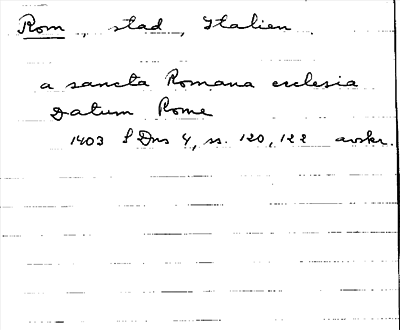 Rom, stad, Italien.
a sancta Romana ecclesia
Datum Rome
1403 S Dns 4, ss. 120, 122 avskr.